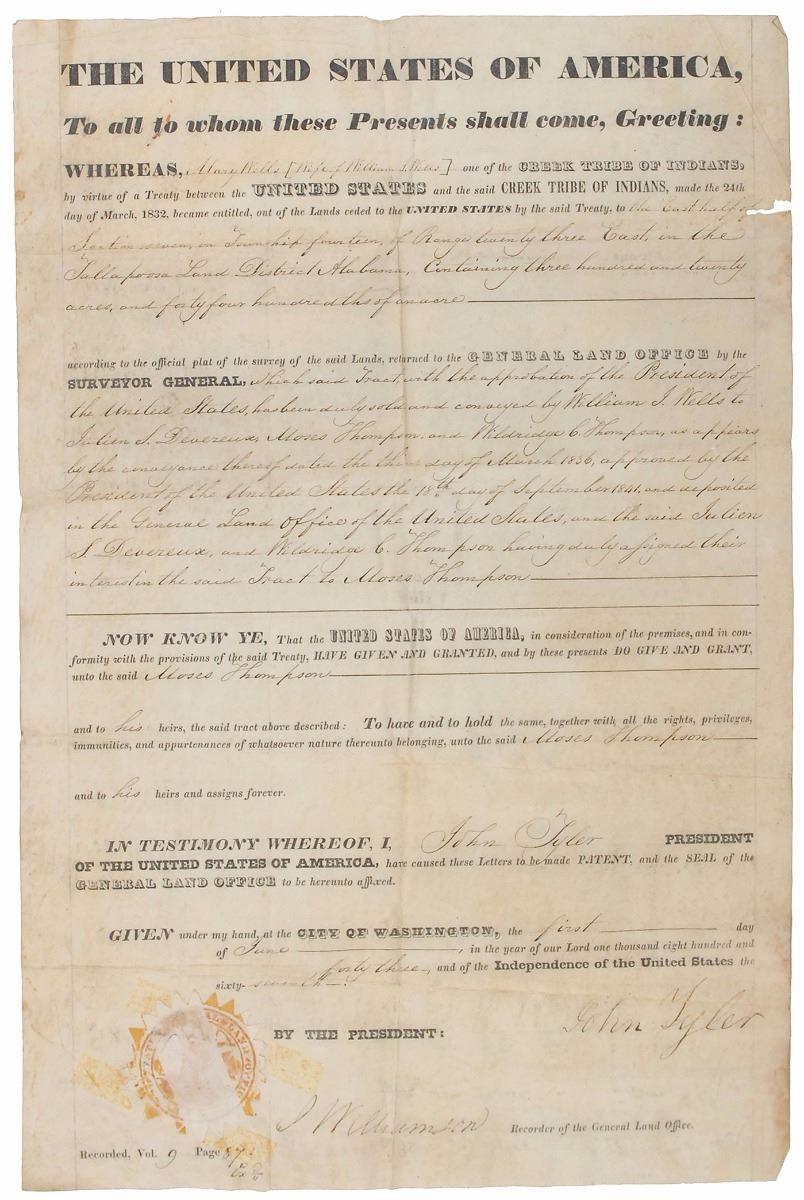 THE UNITED STATES OF AMERICA,
To all to whom these Presents shall come, Greeting:
WHEREAS, Mary Wells [Wife of William J. Wells] one of the CREEK TRIBE OF INDIANS,
by virtue of a Treaty between the UNITED STATES and the said CREEK TRIBE OF INDIANS, made the 24th
day of March, 1832, became entitled, out of the Lands ceded to the UNITED STATES by the said Treaty, to the East half of
Section seven, in Township fourteen, of Range twenty three East, in the
Tallapoosa Land District Alabama, Containing three hundred and twenty
acres, and forty four hundredths of an acre
according to the official plat of the survey of the said Lands, returned to the GENERAL LAND OFFICE by the
SURVEYOR GENERAL, which said Tract, with the approbation of the President of
the United States, has been duly sold and conveyed by William J. Wells to
Julien S. Devereux, Moses Thompson, and Wildridge C. Thompson, as appears
by the conveyance thereof dated the third day of March 1836, approved by the
President of the United States the 18th day of September 1841, and deposited
in the General Land Office of the United States, and the said Julien
S. Devereux, and Wildridge C. Thompson having duly assigned their
interest in the said Tract to Moses Thompson
NOW KNOW YE, That the UNITED STATES OF AMERICA, in consideration of the premises, and in con-
formity with the provisions of the said Treaty, HAVE GIVEN AND GRANTED, and by these presents DO GIVE AND GRANT,
unto the said Moses Thompson
and to his heirs, the said tract above described: To have and to hold the same, together with all the rights, privileges,
immunities, and appurtenances of whatsoever nature thereunto belonging, unto the said Moses Thompson
and to his heirs and assigns forever.
IN TESTIMONY WHEREOF, I, John Tyler PRESIDENT
OF THE UNITED STATES OF AMERICA, have caused these Letters to be made PATENT, and the SEAL of the
GENERAL LAND OFFICE to be hereunto affixed.
GIVEN under my hand, at the CITY OF WASHINGTON, the first day
of June, in the year of our Lord one thousand eight hundred and
forty three, and of the Independence of the United States the
sixty-seventh.
BY THE PRESIDENT: John Tyler
J Williamson Recorder of the General Land Office.
Recorded, Vol. 9 Page